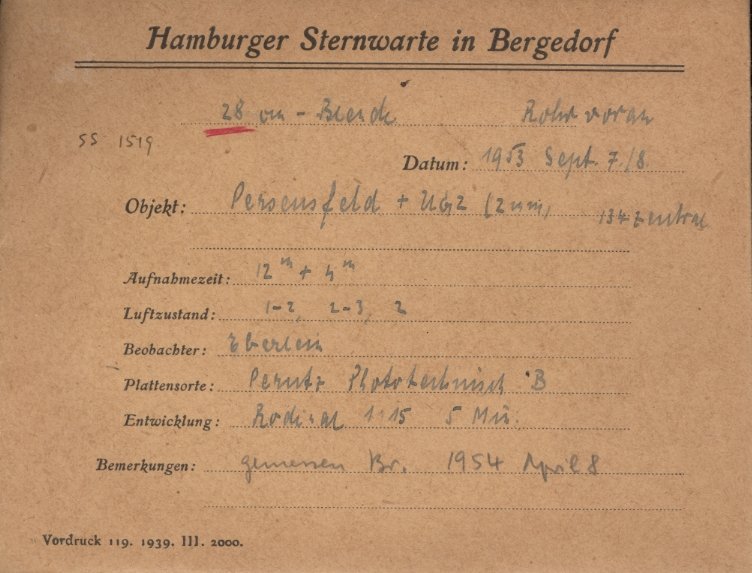 Hamburger Sternwarte in Bergedorf
28 cm - Blende Rohr voran
SS 1519
Datum: 1953 Sept. 7./8.
Objekt: Perseusfeld + (2 mm) 134 zentral
Aufnahmezeit: 12 m + 4 m
Luftzustand: 1-2, 2-3, 2
Beobachter: Eberlein
Plattensorte: Perutz Phototechnisch B
Entwicklung: Rodinal 1:15 5 Min.
Bemerkungen: gemessen Br. 1954 April 8
Vordruck 119. 1939. III. 2000.